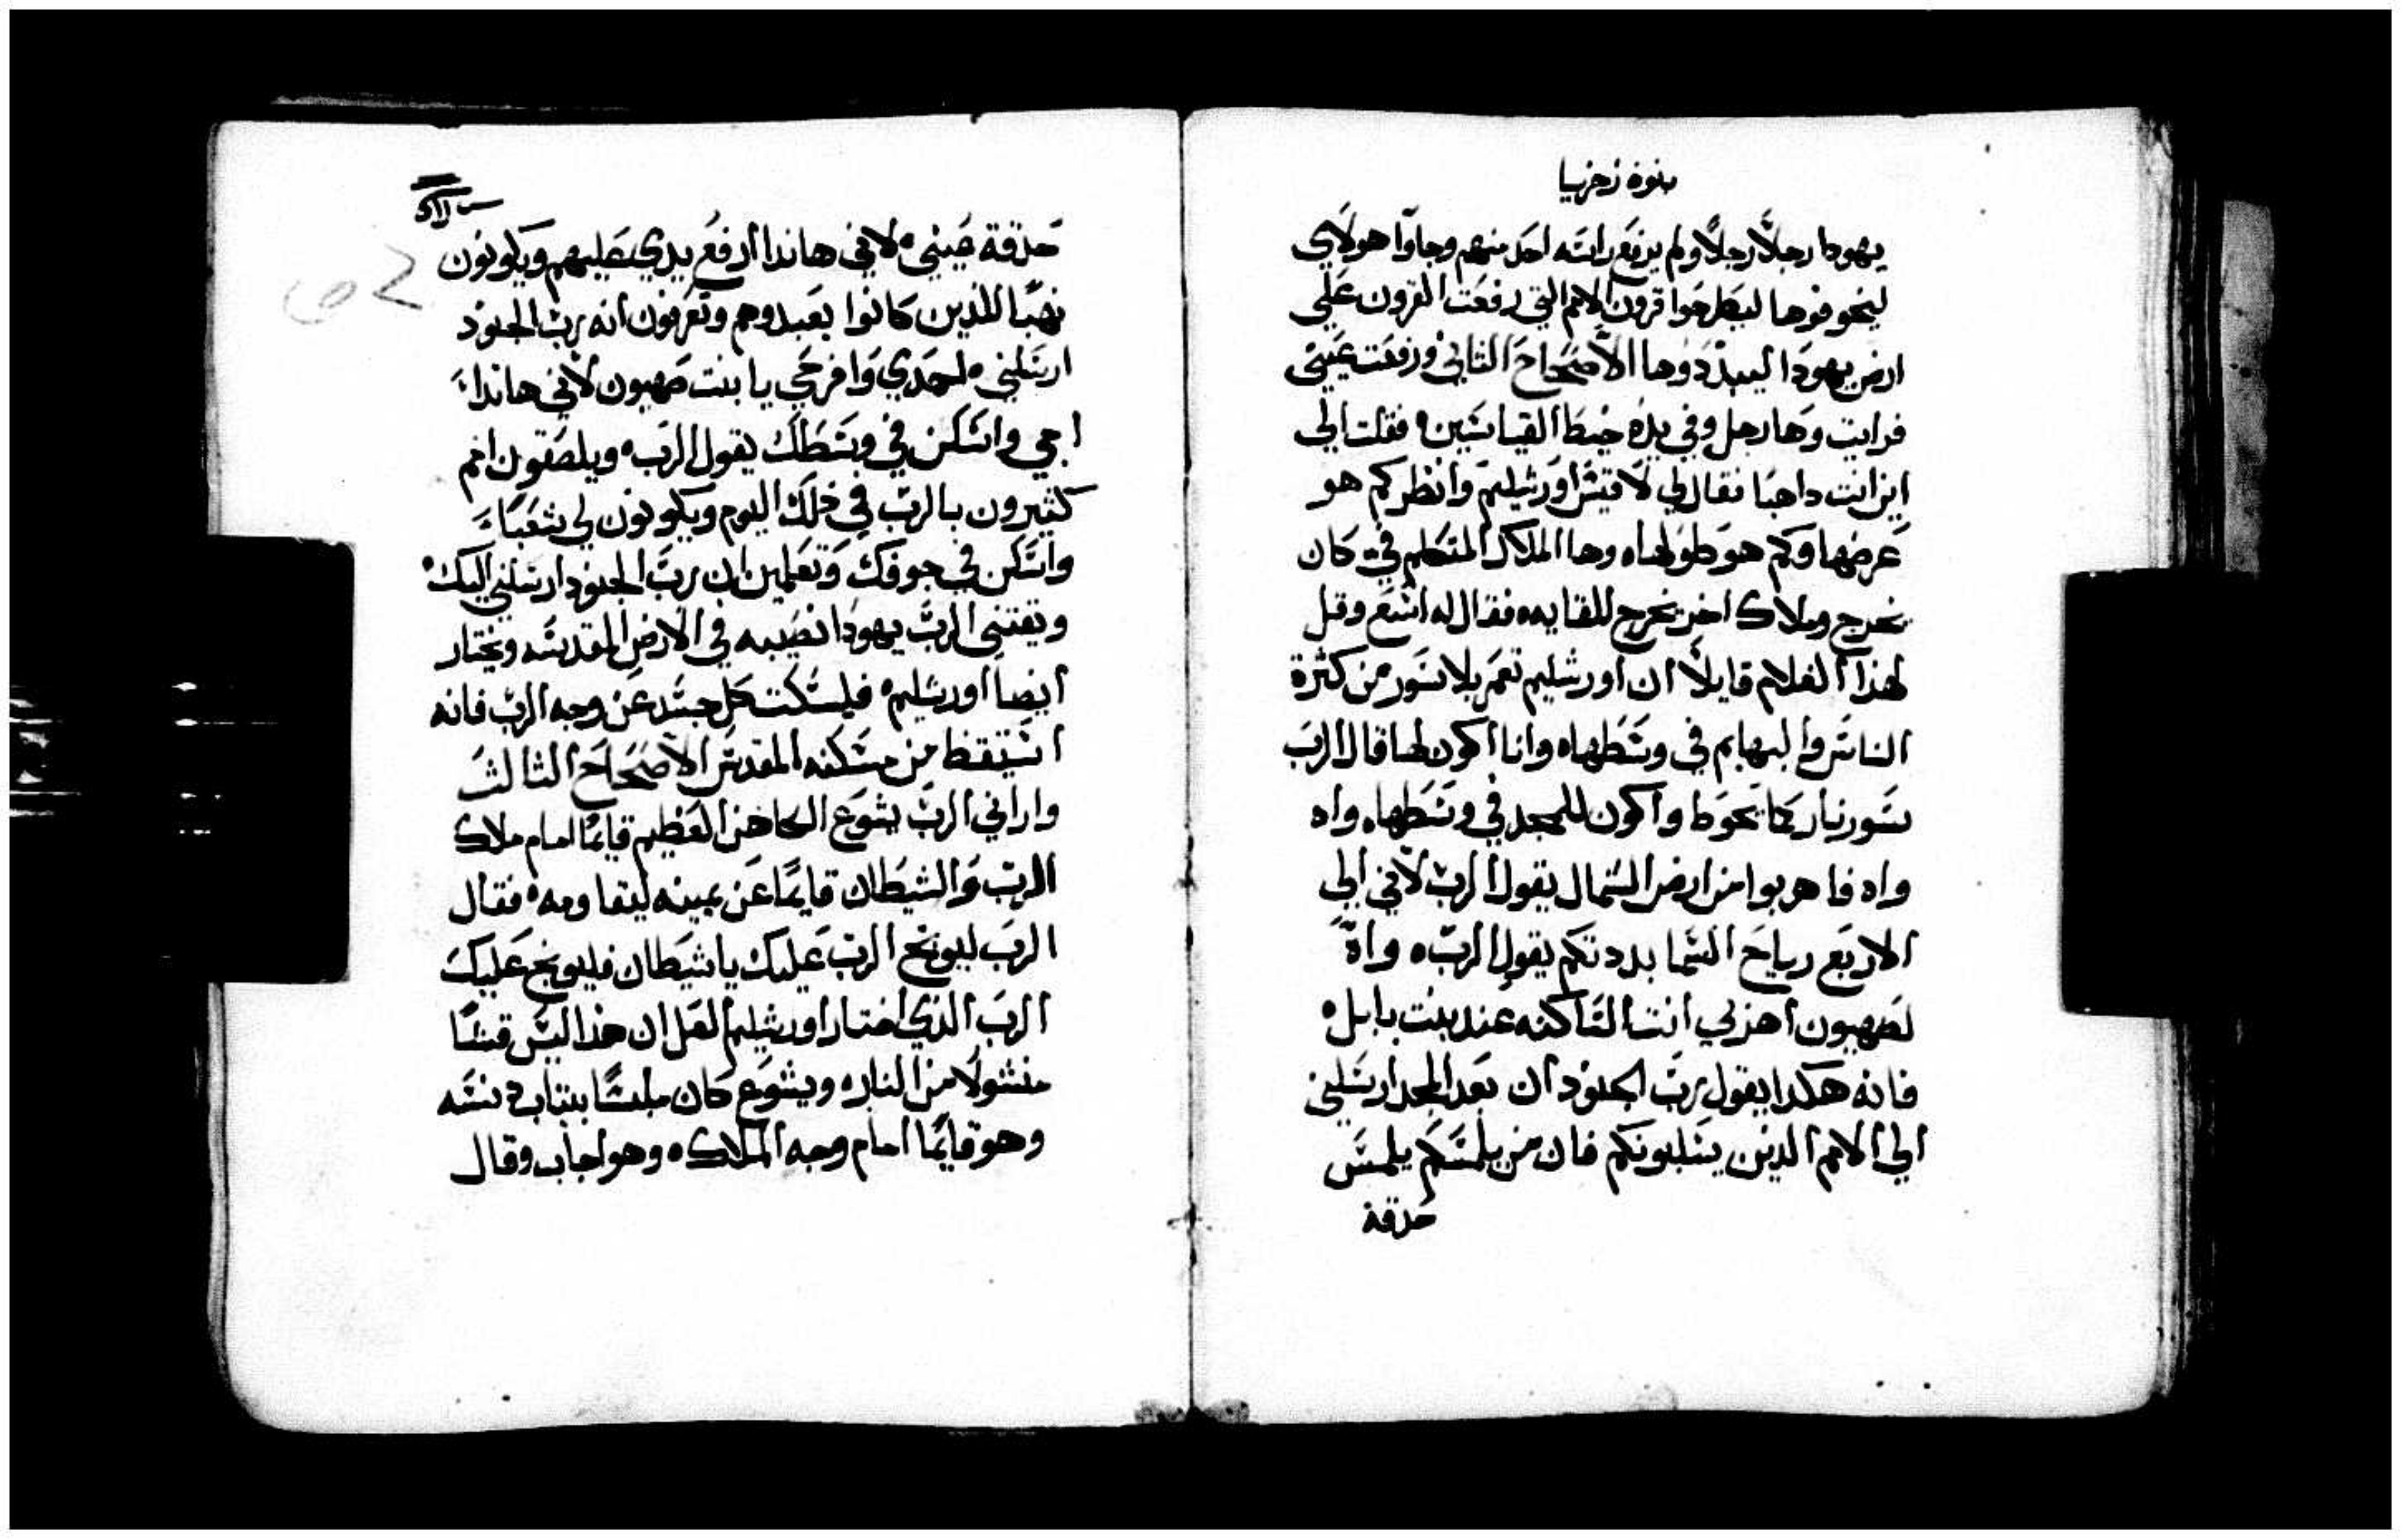 بنوة زخريا
يهودا رجلاً رجلاً ولم يرفع راسه احد منهم وجاوا هولاي
ليخوفوها ليطرحوا قرون الامم التي رفعت القرون علي
ارض يهودا ليبددوها الاصحاح الثاني ورفعت عيني
فرايت وها رجل وفي يده خيط القياسين ه فقلت الي
اين انت داهبا فقال لي لاقيس اورشليم وانظر كم هو
عرضها وكم هو طولها ه وها الملاك المتكلم في كان
يخرج وملاك اخر يخرج للقايه ه فقال له اسع وقل
لهذا الغلام قايلاً ان اورشليم تعمر بلا سور من كثرة
الناس والبهايم في وسطها ه وانا اكون لها قال الرب
سور نار كما يحوط واكون للمجد في وسطها ه واه
واه فاهربوا من ارض الشمال يقول الرب لاني الي
الاربع رياح السما بددتكم يقول الرب ه واه
لصهيون اهزلي انت الساكنه عند بنت بابل ه
فانه هكدا يقول رب الجنود ان بعد المجد ارسلني
الي الامم الدين يسلبونكم فان من يلمسكم يلمس
حدقة
حدقة عيني ه لاني هاندا ارفع يدي عليهم ويكونون
نهبًا للذين كانوا يعبدوهم وتعرفون انه رب الجنود
ارسلني ه لحمدي وافرحي يا بنت صهيون لاني هاندا
اجي واسكن في وسطك يقول الرب ه ويلصقون امم
كثيرون بالرب في ذلك اليوم ويكونون لي شعبًا
واسكن في جوفك وتعلمين ان رب الجنود ارسلني اليك ه
ويقتني الرب يهودا نصيبه في الارض المقدسه ويختار
ايضا اورشليم ه فليسكت كل جسد عن وجه الرب فانه
استيقظ من مسكنه المقدس الاصحاح الثالث
واراني الرب يشوع الكاهن العظيم قايمًا امام ملاك
الرب والشيطان قايمًا عن يمينه ليقاومه ه فقال
الرب ليوبخ الرب عليك يا شيطان فليوبخ عليك
الرب الذي اختار اورشليم لعل ان هذا ليس قبسًا
منشولاً من النار ه ويشوع كان ملبسًا بتياب دنسه
وهو قايمًا امام وجه الملاك ه وهو اجاب وقال